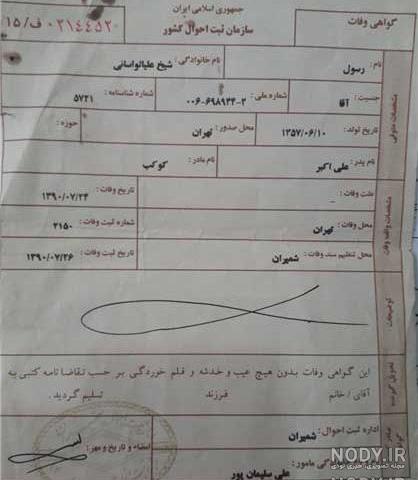 گواهی وفات
جمهوری اسلامی ایران
سازمان ثبت احوال کشور
۰۲۱۴۴۵۲ ف/۱۵
نام: رسول نام خانوادگی: شیخ علیالواسانی
جنسیت: آقا شماره ملی: ۰۰۶-۶۹۸۹۴۴-۲ شماره شناسنامه: ۵۷۲۱
تاریخ تولد: ۱۳۵۷/۰۶/۱۰ محل صدور: تهران حوزه:
نام پدر: علی اکبر نام مادر: کوکب
مشخصات متوفی
علت وفات: - تاریخ وفات: ۱۳۹۰/۰۷/۲۴
محل وفات: تهران شماره ثبت وفات: ۲۱۵۰
محل تنظیم سند وفات: شمیران تاریخ ثبت وفات: ۱۳۹۰/۰۷/۲۶
مشخصات واقعه وفات
توضیحات
این گواهی وفات بدون هیچ عیب و خدشه و قلم خوردگی بر حسب تقاضا نامه کتبی به
آقای / خانم فرزند تسلیم گردید.
اداره ثبت احوال: شمیران امضاء و تاریخ و مهر:
مأمور: علی سلیمان پور
NODY.IR
مجله تصویری خبری نودی